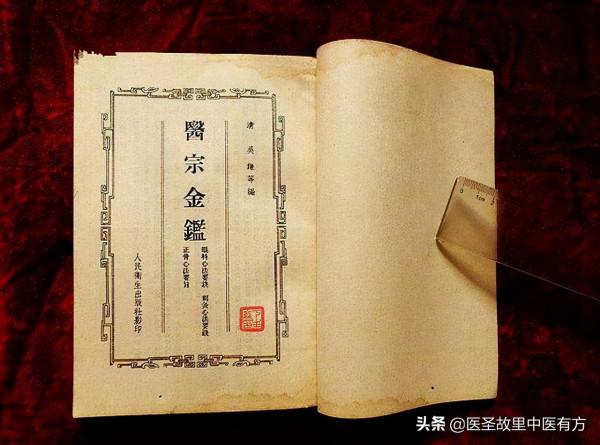 清 吳謙等編
醫宗金鑑
眼科心法要訣 刺灸心法要訣
正骨心法要旨
人民衛生出版社影印
0 1cm
头条 @医圣故里中医有方